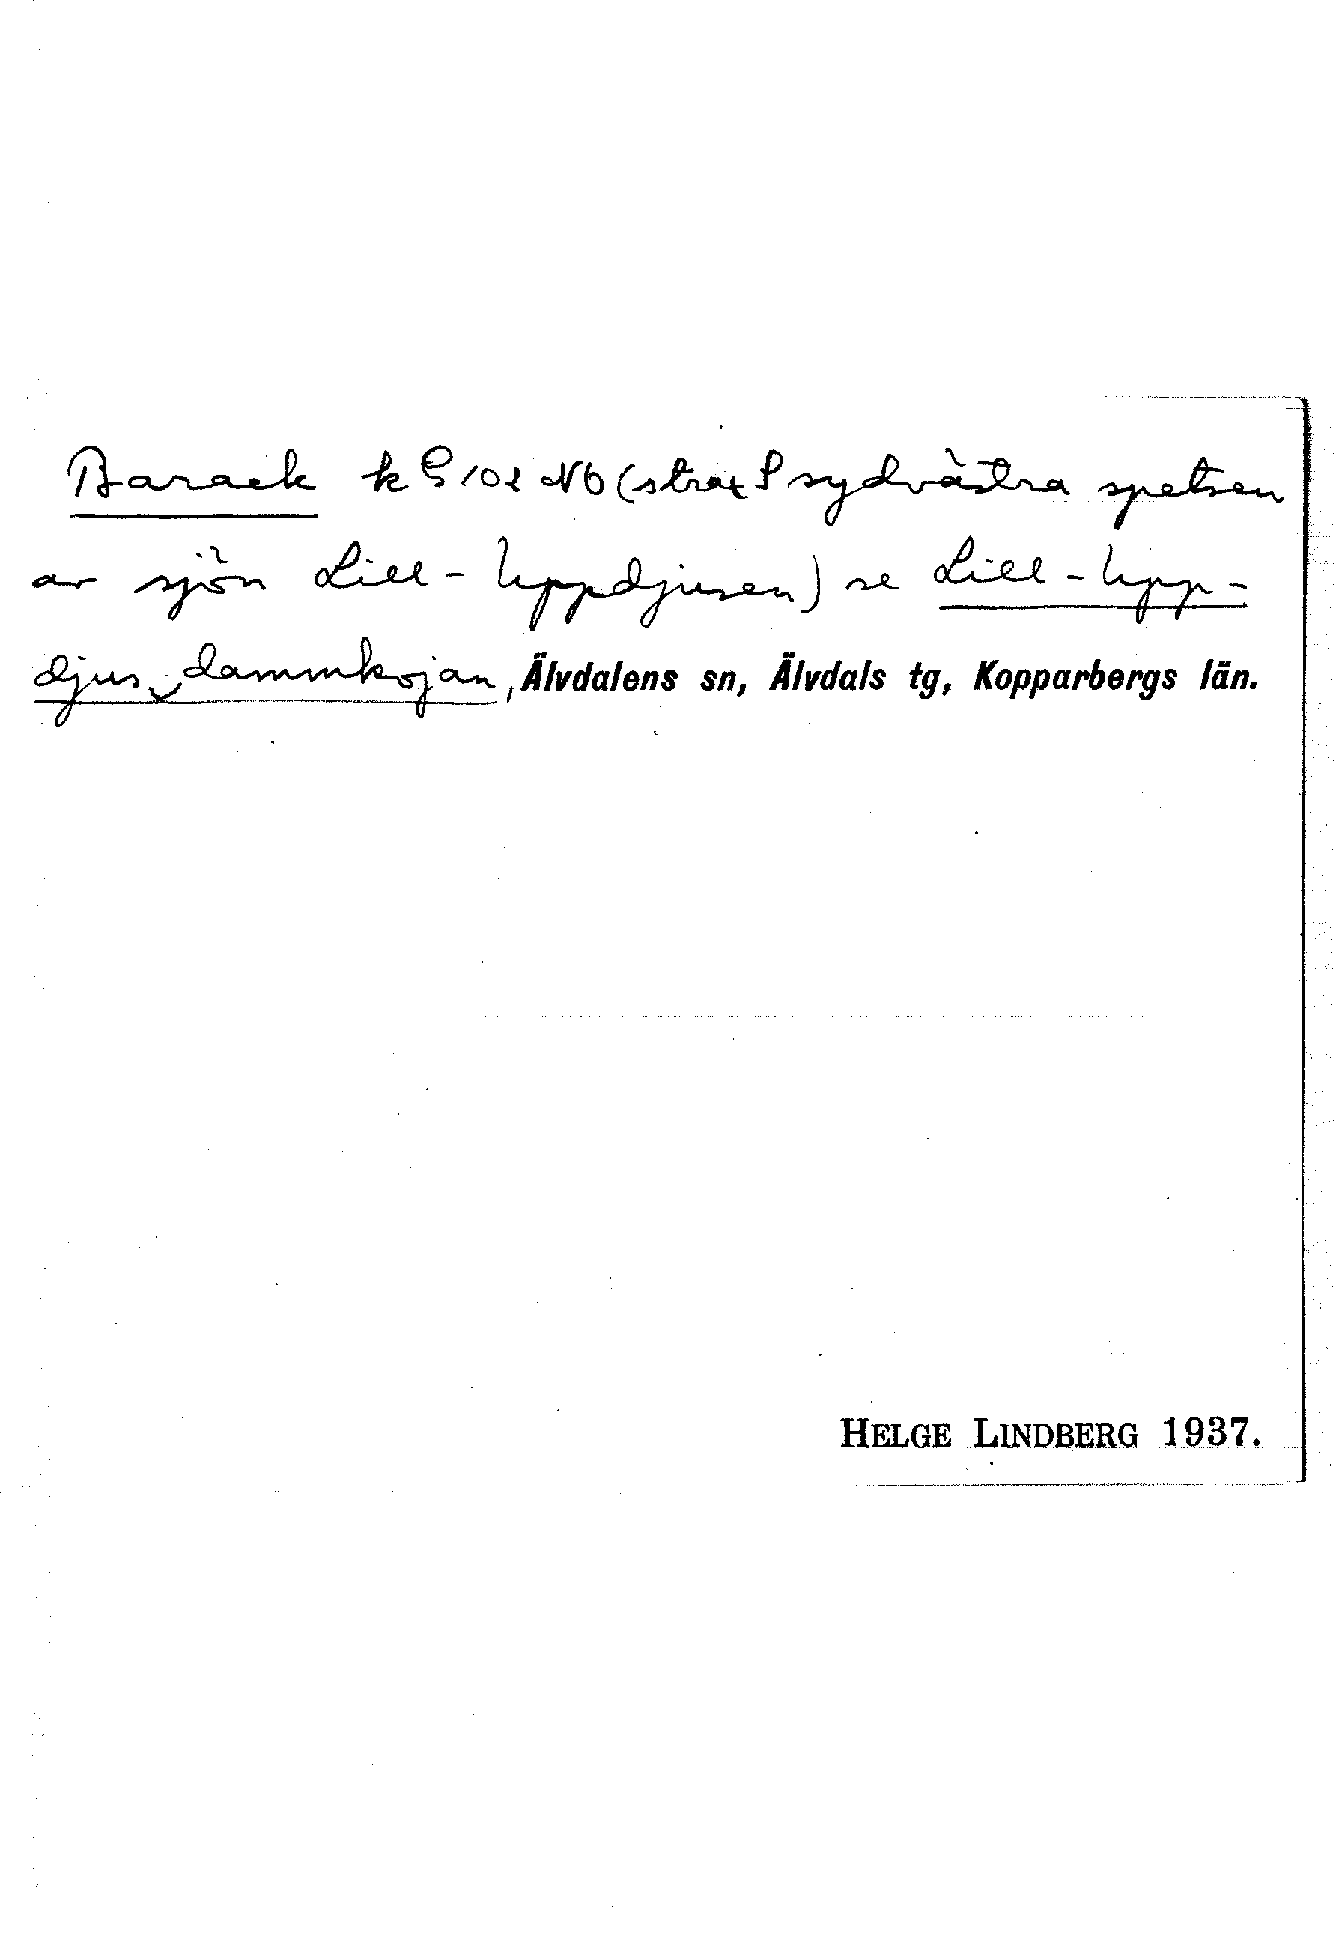 Barack k G 102 NO (strax S sydvästra spetsen
av sjön Lill-Uppdjusen) se Lill-Upp-
djus dammkojan, Älvdalens sn, Älvdals tg, Kopparbergs län.
HELGE LINDBERG 1937.